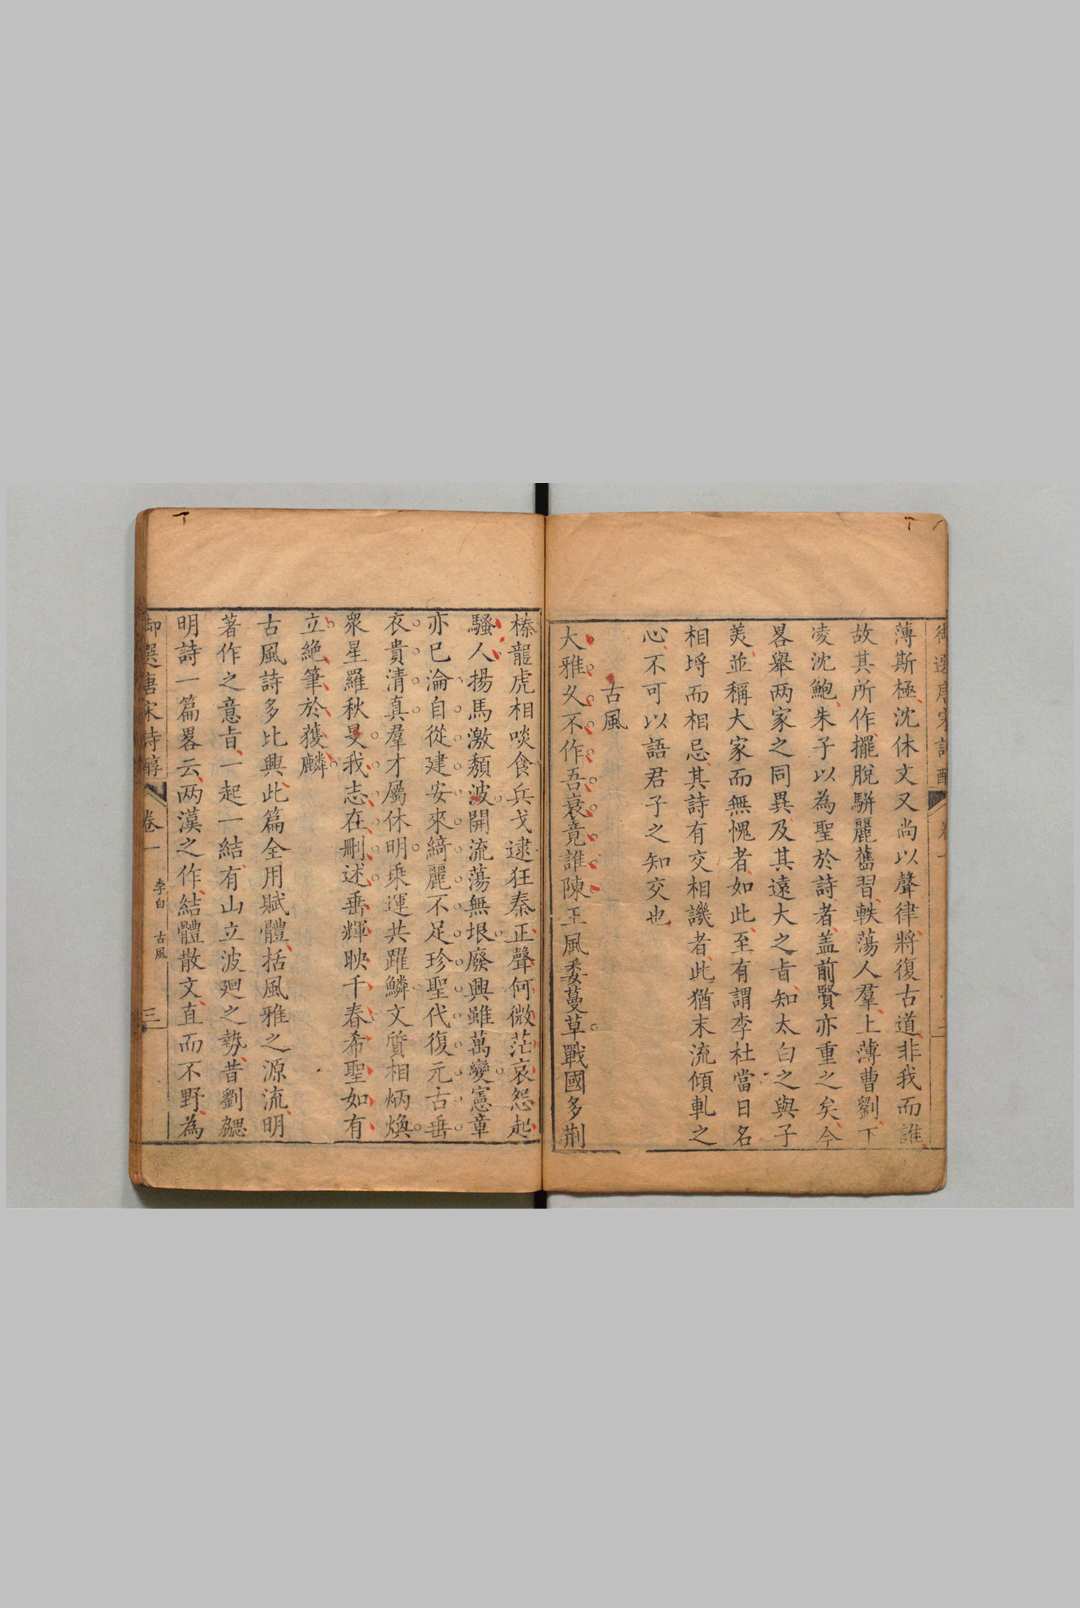 薄斯極沈休文又尚以聲律將復古道非我而誰
故其所作擺脫駢麗舊習軼蕩人羣上薄曹劉下
凌沈鮑朱子以為聖於詩者盖前賢亦重之矣今
畧舉两家之同異及其遠大之㫖知太白之與子
羙並稱大家而無愧者如此至有謂李杜當日名
相埓而相忌其詩有交相譏者此猶末流傾軋之
心不可以語君子之知交也
古風
大雅乆不作吾衰竟誰陳王風委蔓草戰國多荆
榛龍虎相啖食兵戈逮狂秦正聲何微茫哀怨起
騷人揚馬激頽波開流蕩無垠廢興雖萬變憲章
亦已淪自從建安來綺麗不足珍聖代復元古垂
衣貴清真羣才屬休明乘運共躍鱗文質相炳煥
衆星羅秋旻我志在刪述垂輝映千春希聖如有
立絶筆於獲麟
古風詩多比興此篇全用賦體括風雅之源流明
著作之意㫖一起一結有山立波廻之勢昔劉勰
明詩一篇畧云两漢之作結體散文直而不野為
御選唐宋詩醇
卷一
李白 古風
三